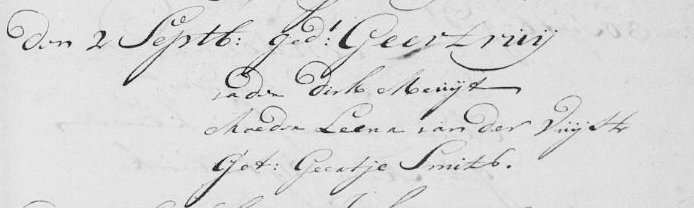 Den 2 Septb: ged: Geertruij
vader Dirk Meuijt
Moeder Leena van der Duijstr
Get: Geertje Smits.